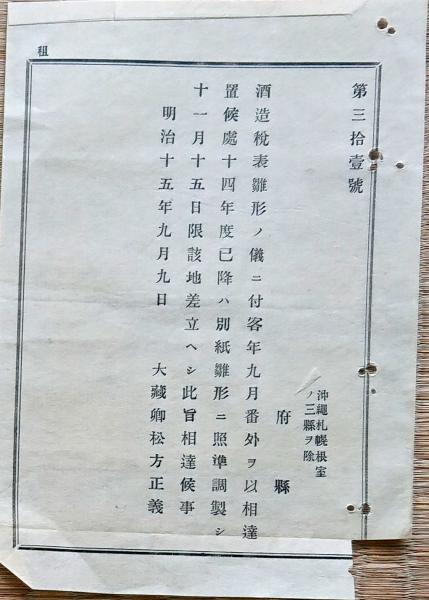 租
第三拾壹號
府縣
沖繩札幌根室
ノ三縣ヲ除
酒造稅表雛形ノ儀ニ付客年九月番外ヲ以相達
置候處十四年度已降ハ別紙雛形ニ照準調製シ
十一月十五日限該地差立ヘシ此旨相達候事
明治十五年九月九日 大藏卿松方正義